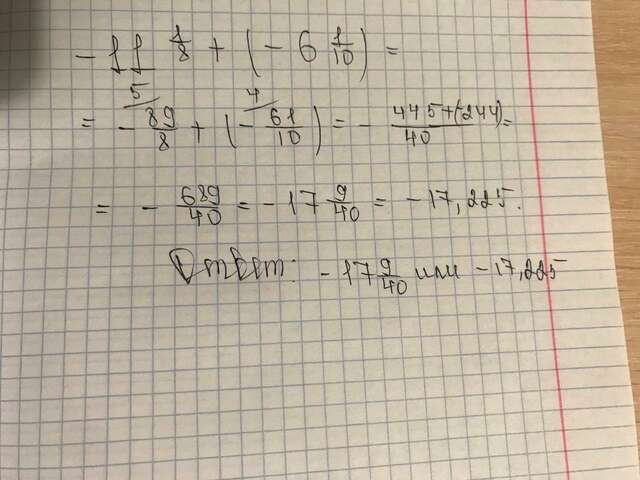 - 11 1/8 + (- 6 1/10) =
5 4
= - 89/8 + (- 61/10) = - 445+(-244)/40 =
= - 689/40 = -17 9/40 = -17,225.
Ответ: -17 9/40 или -17,225